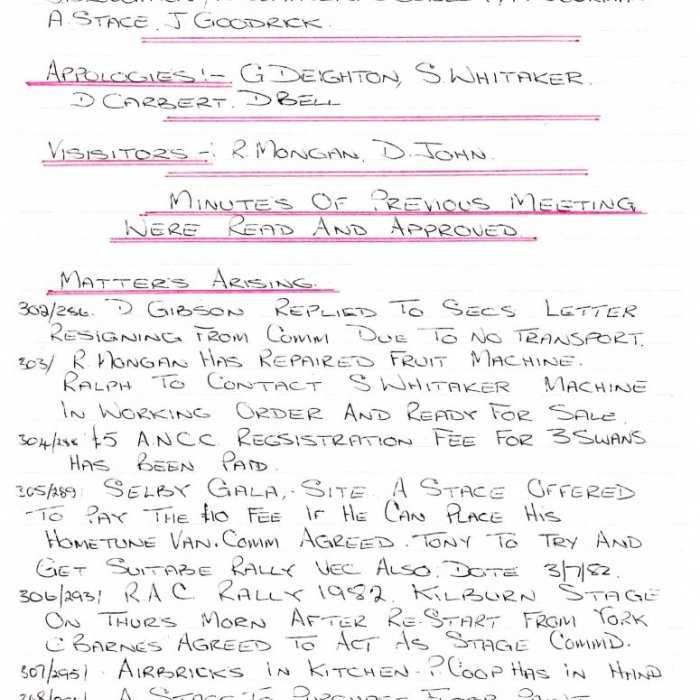 A. STACE, J GOODRICK.
APPOLOGIES:- G DEIGHTON, S. WHITAKER.
D CARBERT. D BELL
VISISITORS -: R. MONGAN, D. JOHN.
MINUTE'S OF PREVIOUS MEETING
WERE READ AND APPROVED
MATTER'S ARISING.
302/286. D GIBSON REPLIED TO SECS LETTER
RESIGNING FROM COMM DUE TO NO TRANSPORT.
303/ R. MONGAN HAS REPAIRED FRUIT MACHINE.
RALPH TO CONTACT S WHITAKER MACHINE
IN WORKING ORDER AND READY FOR SALE.
304/288 £5 A.N.C.C. REGSISTRATION FEE FOR 3 SWANS
HAS BEEN PAID.
305/289: SELBY GALA,. SITE. A STACE OFFERED
TO PAY THE £10 FEE IF HE CAN PLACE HIS
HOMETUNE VAN. COMM AGREED. TONY TO TRY AND
GET SUITABE RALLY VEC ALSO. DATE 3/7/82.
306/293/ R.A.C RALLY 1982. KILBURN STAGE
ON THURS MORN AFTER RE-START FROM YORK
C BARNES AGREED TO ACT AS STAGE COMMD.
307/295/ . AIRBRICKS IN KITCHEN - P. COOP HAS IN HAND
A STACE TO PURCHASE FLOOR PAINT